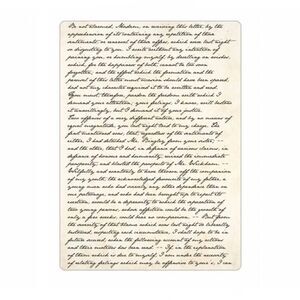 Be not alarmed, Madam, on receiving this letter, by the
apprehension of its containing any repetition of those
sentiments, or renewal of those offers, which were last night
so disgusting to you. I write without any intention of
paining you, or humbling myself, by dwelling on wishes,
which, for the happiness of both, cannot be too soon
forgotten; and the effort which the formation and the
perusal of this letter must occasion should have been spared,
had not my character required it to be written and read.
You must, therefore, pardon the freedom with which I
demand your attention; your feelings, I know, will bestow
it unwillingly, but I demand it of your justice.
Two offences of a very different nature, and by no means of
equal magnitude, you last night laid to my charge. The
first mentioned was, that, regardless of the sentiments of
either, I had detached Mr. Bingley from your sister; --
and the other, that I had, in defiance of various claims, in
defiance of honour and humanity, ruined the immediate
prosperity, and blasted the prospects of Mr. Wickham. --
Wilfully and wantonly to have thrown off the companion
of my youth, the acknowledged favourite of my father, a
young man who had scarcely any other dependence than on
our patronage, and who had been brought up to expect its
exertion, would be a depravity to which the separation of
two young persons, whose affection could be the growth of
only a few weeks, could bear no comparison. -- But from
the severity of that blame which was last night so liberally
bestowed, respecting each circumstance, I shall hope to be in
future secured, when the following account of my actions
and their motives has been read. -- If, in the explanation
of them which is due to myself, I am under the necessity
of relating feelings which may be offensive to your's, I can